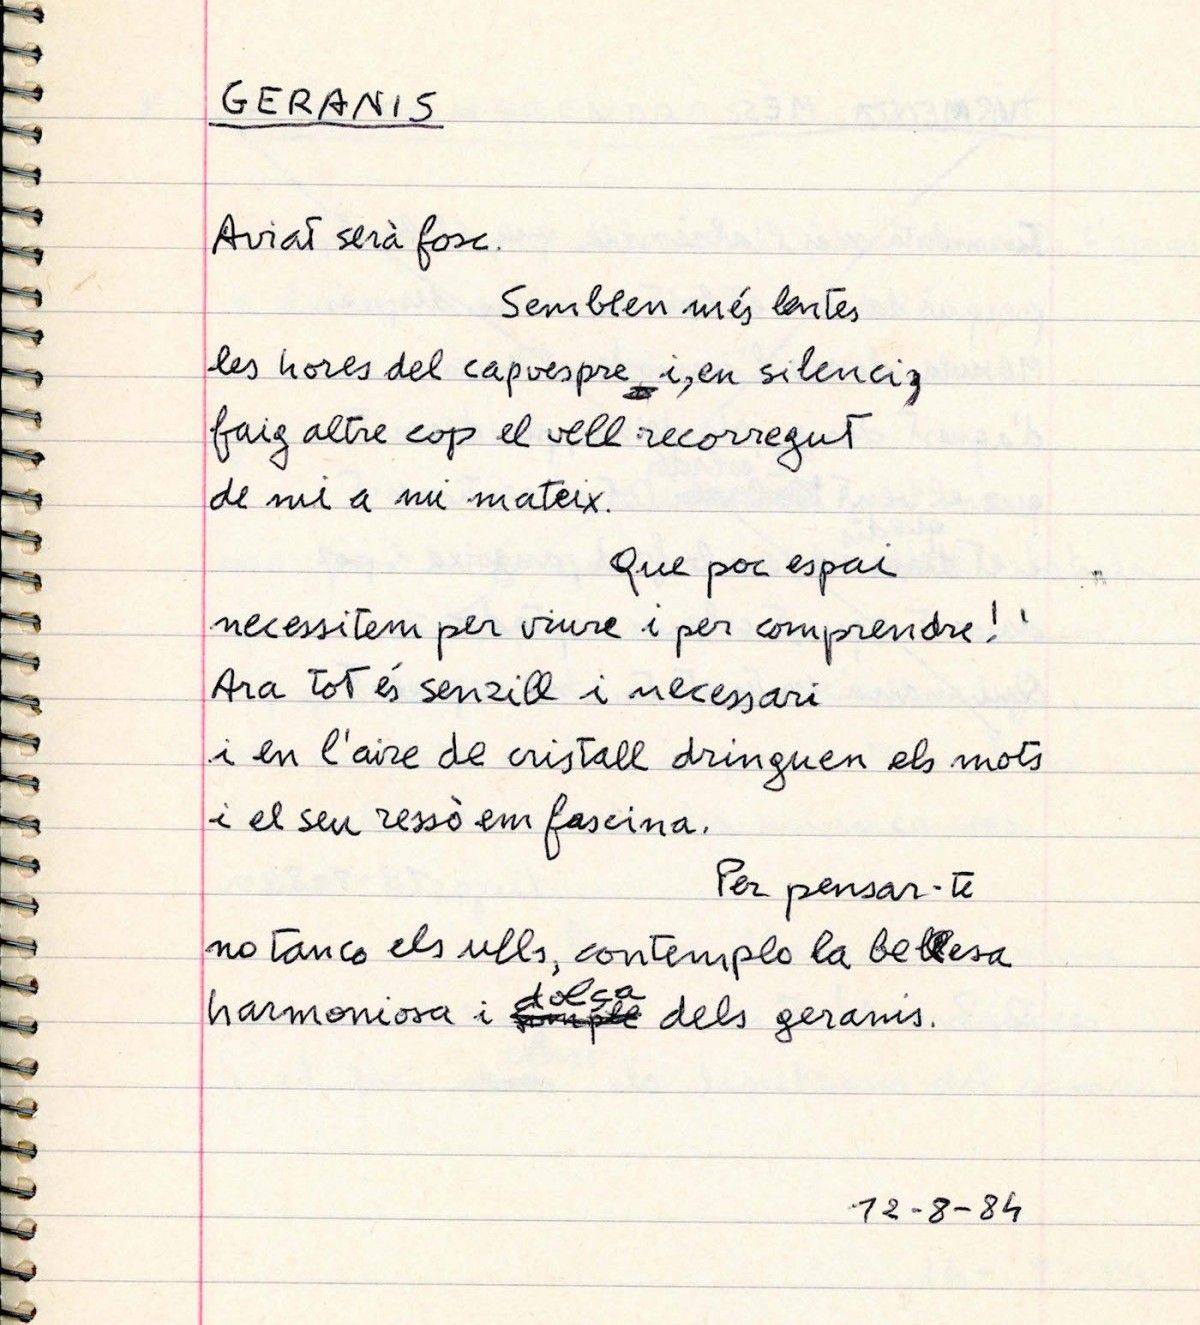 GERANIS
Aviat serà fosc.
Semblen més lentes
les hores del capvespre i, en silenci,
faig altre cop el vell recorregut
de mi a mi mateix.
Que poc espai
necessitem per viure i per comprendre!
Ara tot és senzill i necessari
i en l'aire de cristall dringuen els mots
i el seu ressò em fascina.
Per pensar-te
no tanco els ulls, contemplo la bellesa
dolça
harmoniosa i simple dels geranis.
12-8-84